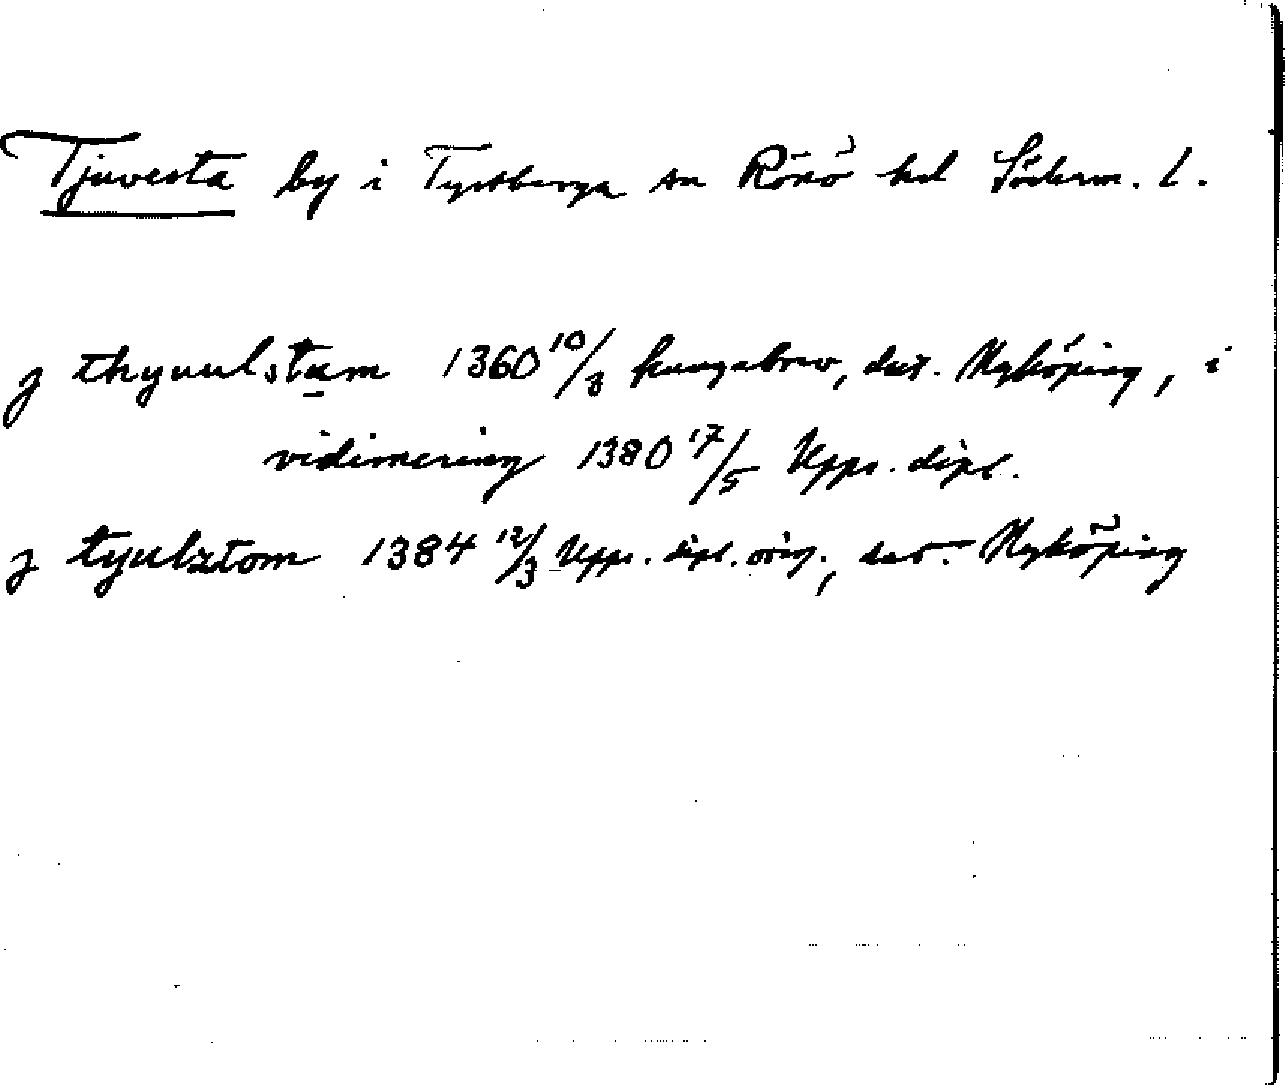 Tjuvesta by i Tystberga sn Rönö hd Söderm. l.
j thyuulstam 1360 10/3 kungabrev, dat. Nyköping, i
vidimering 1380 17/5 Upps. dipl.
j tyulztom 1384 12/3 Upps. dipl. orig., dat. Nyköping